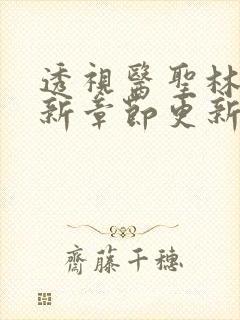 透視醫聖林
新章節更新
齋藤千穗